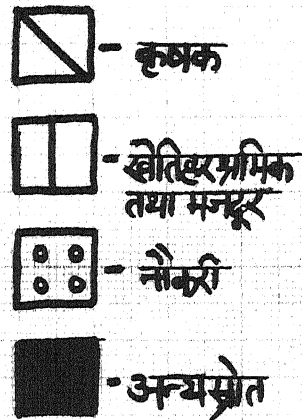 - कृषक
- खेतिहर श्रमिक
तथा मजदूर
- नौकरी
- अन्य स्रोत